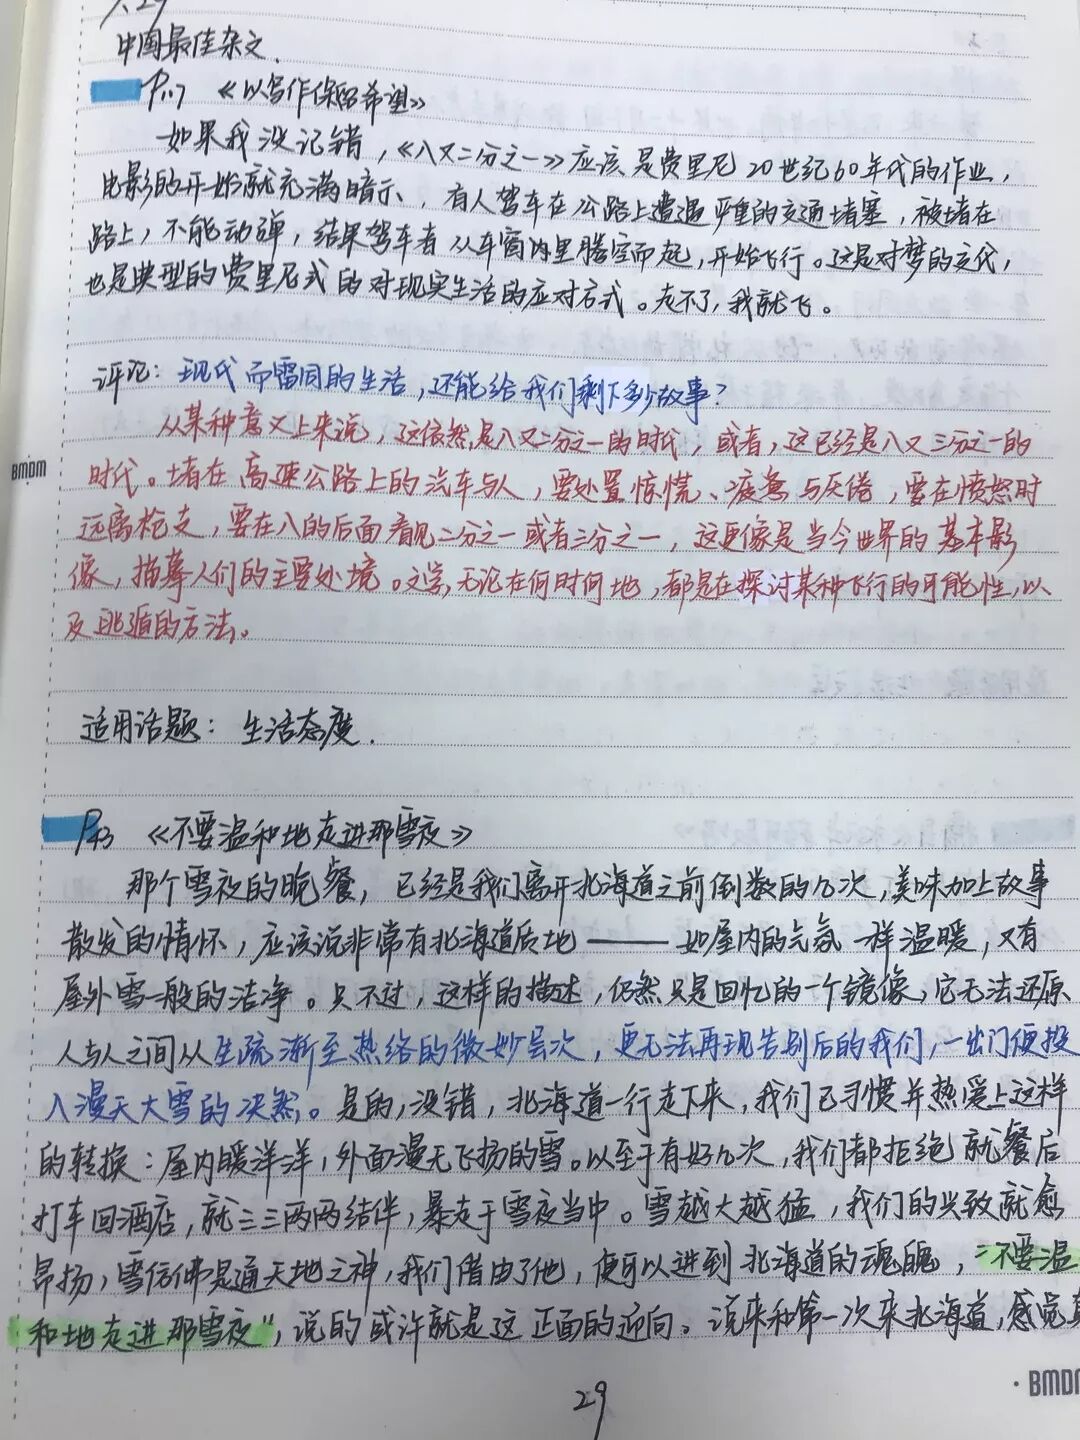 中国最佳杂文.
P117 《以写作保留希望》
如果我没记错,《八又二分之一》应该是费里尼20世纪60年代的作业,
电影的开始就充满暗示,有人驾车在公路上遭遇严重的交通堵塞,被堵在
路上,不能动弹,结果驾车者从车窗内里腾空而起,开始飞行。这是对梦的交代,
也是典型的费里尼式的对现实生活的应对方式。走不了,我就飞。
评论:现代而雷同的生活,还能给我们剩下多少故事?
从某种意义上来说,这依然是八又二分之一的时代,或者,这已经是八又三分之一的
时代。堵在高速公路上的汽车与人,要处置惊慌、疲惫与厌倦,要在愤怒时
远离枪支,要在八的后面看见二分之一或者三分之一,这更像是当今世界的基本影
像,描摹人们的主要处境。文学,无论在何时何地,都是在探讨某种飞行的可能性,以
及逃遁的方法。
BMDM
适用话题:生活态度.
P43 《不要温和地走进那雪夜》
那个雪夜的晚餐,已经是我们离开北海道之前倒数的几次,美味加上故事
散发的情怀,应该说非常有北海道质地——如屋内的气氛一样温暖,又有
屋外雪一般的洁净。只不过,这样的描述,仍然只是回忆的一个镜像,它无法还原
人与人之间从生疏渐至热络的微妙层次,更无法再现告别后的我们,一出门便投
入漫天大雪的决然。是的,没错,北海道一行走下来,我们已习惯并热爱上这样
的转换:屋内暖洋洋,外面漫无飞扬的雪。以至于有好几次,我们都拒绝就餐后
打车回酒店,就三三两两结伴,暴走于雪夜当中。雪越大越猛,我们的兴致就愈
昂扬,雪信佛是通天地之神,我们借由了他,便可以进到北海道的魂魄,“不要温
和地走进那雪夜”,说的或许就是这正面的迎向。说来和第一次来北海道,感觉真
BMDM
29